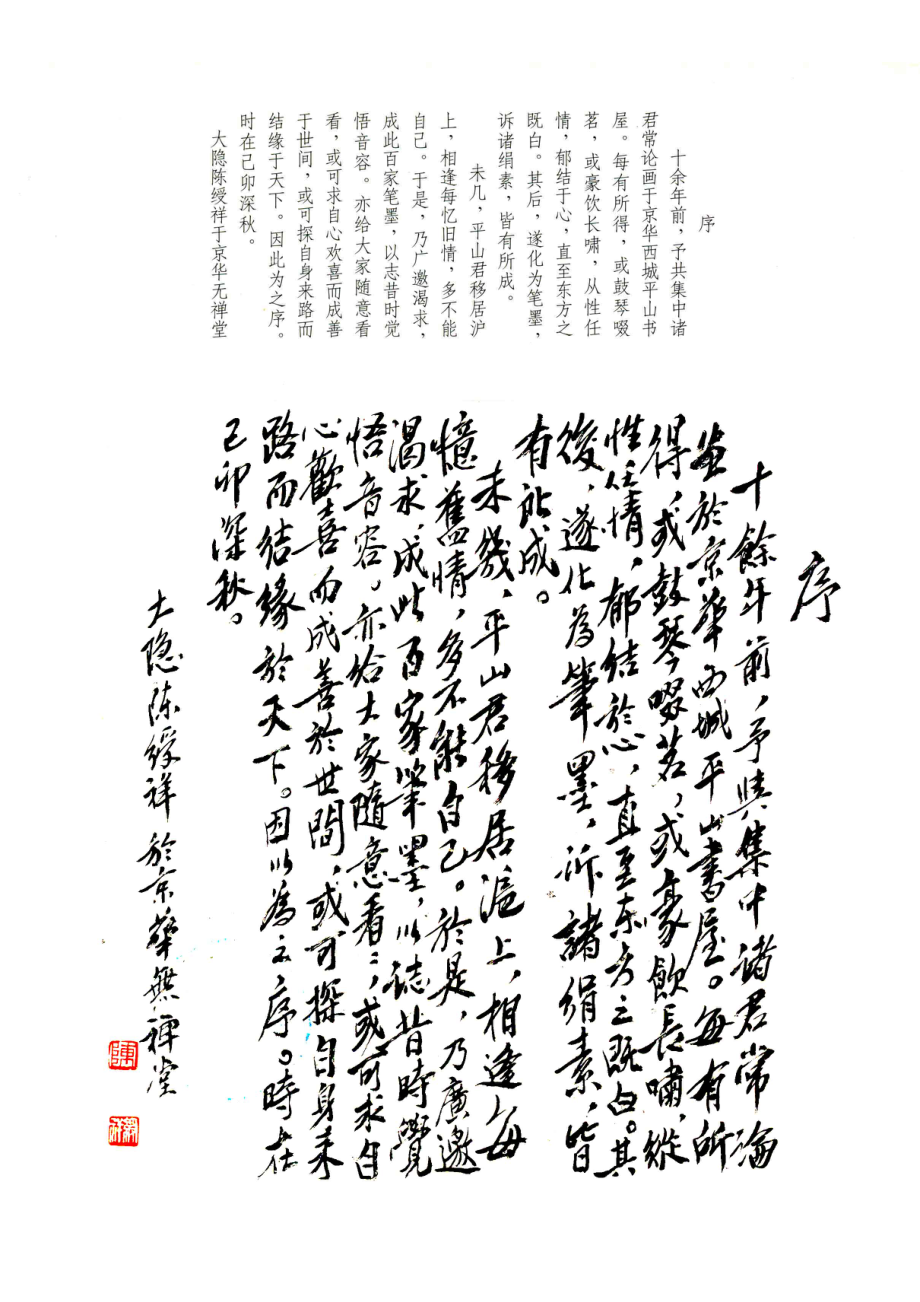 序
十余年前，予共集中诸
君常论画于京华西城平山书
屋。每有所得，或鼓琴啜
茗，或豪饮长啸，从性任
情，郁结于心，直至东方之
既白。其后，遂化为笔墨，
诉诸绢素，皆有所成。
未几，平山君移居沪
上，相逢每忆旧情，多不能
自己。于是，乃广邀渴求，
成此百家笔墨，以志昔时觉
悟音容。亦给大家随意看
看，或可求自心欢喜而成善
于世间，或可探自身来路而
结缘于天下。因此为之序。
时在己卯深秋。
大隐陈绶祥于京华无禅堂
序
十餘年前，予與集中诸君常論
畫於京華西城平山書屋。每有所
得，或鼓琴啜茗，或豪飲長嘯，縱
性任情，郁结於心，直至东方之既白。其
後，遂化為筆墨，訴諸絹素，皆
有所成。
未幾，平山君移居滬上，相逢每
憶舊情，多不能自己。於是，乃廣邀
渴求，成此百家筆墨，以誌昔時覺
悟音容。亦给大家隨意看看，或可求自
心歡喜而成善於世間，或可探自身来
路而结缘於天下。因以為之序。時在
己卯深秋。
大隐陈绶祥於京華無禪堂